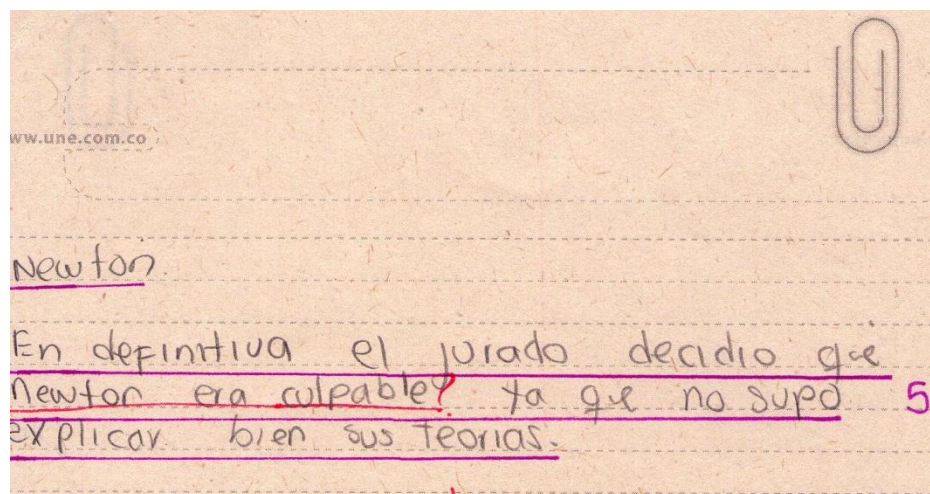 ww.une.com.co
Newton.
En definitiva el jurado decidio que
newton era culpable? ya que no supo 5
explicar bien sus teorias.